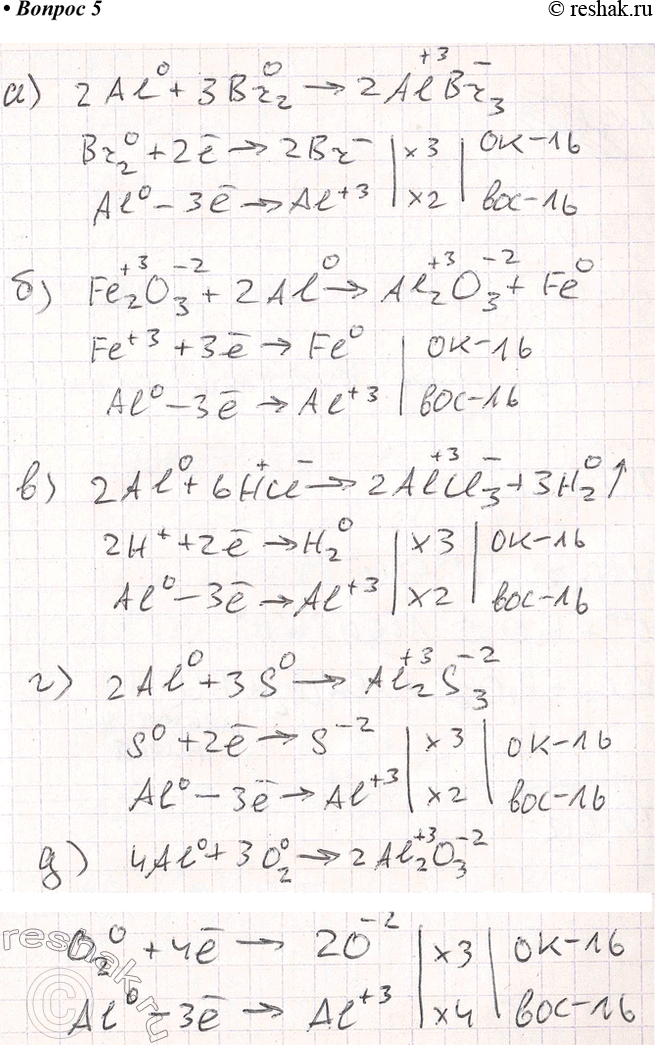 • Вопрос 5
© reshak.ru
а) 2Al⁰ + 3Br₂⁰ → 2Al⁺³Br₃⁻
Br₂⁰ + 2ē → 2Br⁻ | ×3 | ок-ль
Al⁰ - 3ē → Al⁺³ | ×2 | вос-ль
б) Fe₂⁺³O₃⁻² + 2Al⁰ → Al₂⁺³O₃⁻² + Fe⁰
Fe⁺³ + 3ē → Fe⁰ | ок-ль
Al⁰ - 3ē → Al⁺³ | вос-ль
в) 2Al⁰ + 6H⁺Cl⁻ → 2Al⁺³Cl₃⁻ + 3H₂⁰↑
2H⁺ + 2ē → H₂⁰ | ×3 | ок-ль
Al⁰ - 3ē → Al⁺³ | ×2 | вос-ль
г) 2Al⁰ + 3S⁰ → Al₂⁺³S₃⁻²
S⁰ + 2ē → S⁻² | ×3 | ок-ль
Al⁰ - 3ē → Al⁺³ | ×2 | вос-ль
д) 4Al⁰ + 3O₂⁰ → 2Al₂⁺³O₃⁻²
O₂⁰ + 4ē → 2O⁻² | ×3 | ок-ль
Al⁰ - 3ē → Al⁺³ | ×4 | вос-ль
reshak.ru
©